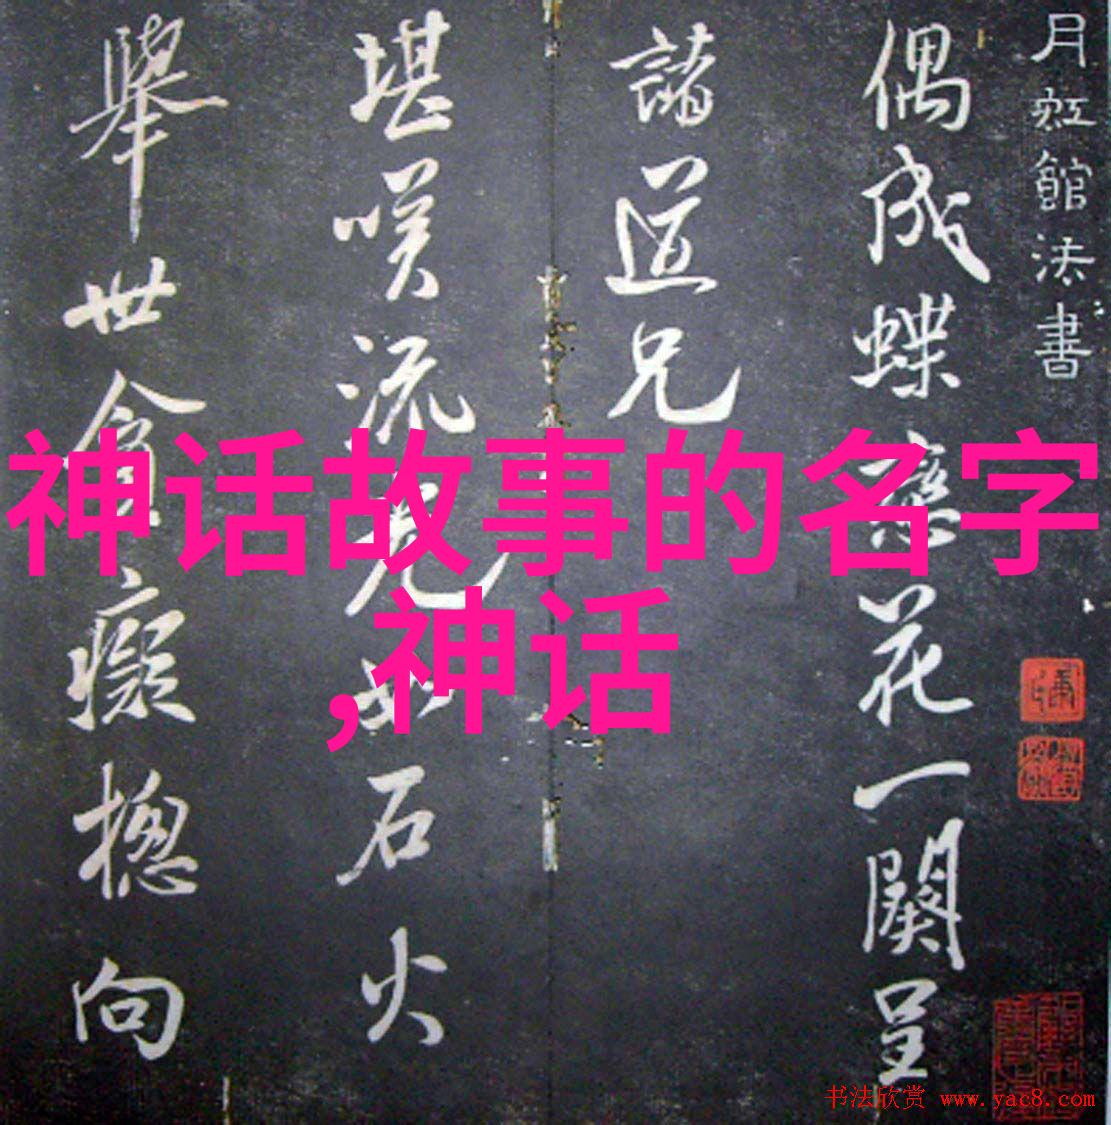 月虹館法書
偶成蝶戀花一闋呈
諸道兄
堪咲流光如石火
舉世貪癡摠向
神话故事的名字
,神话
书法欣赏 www.yac8.com